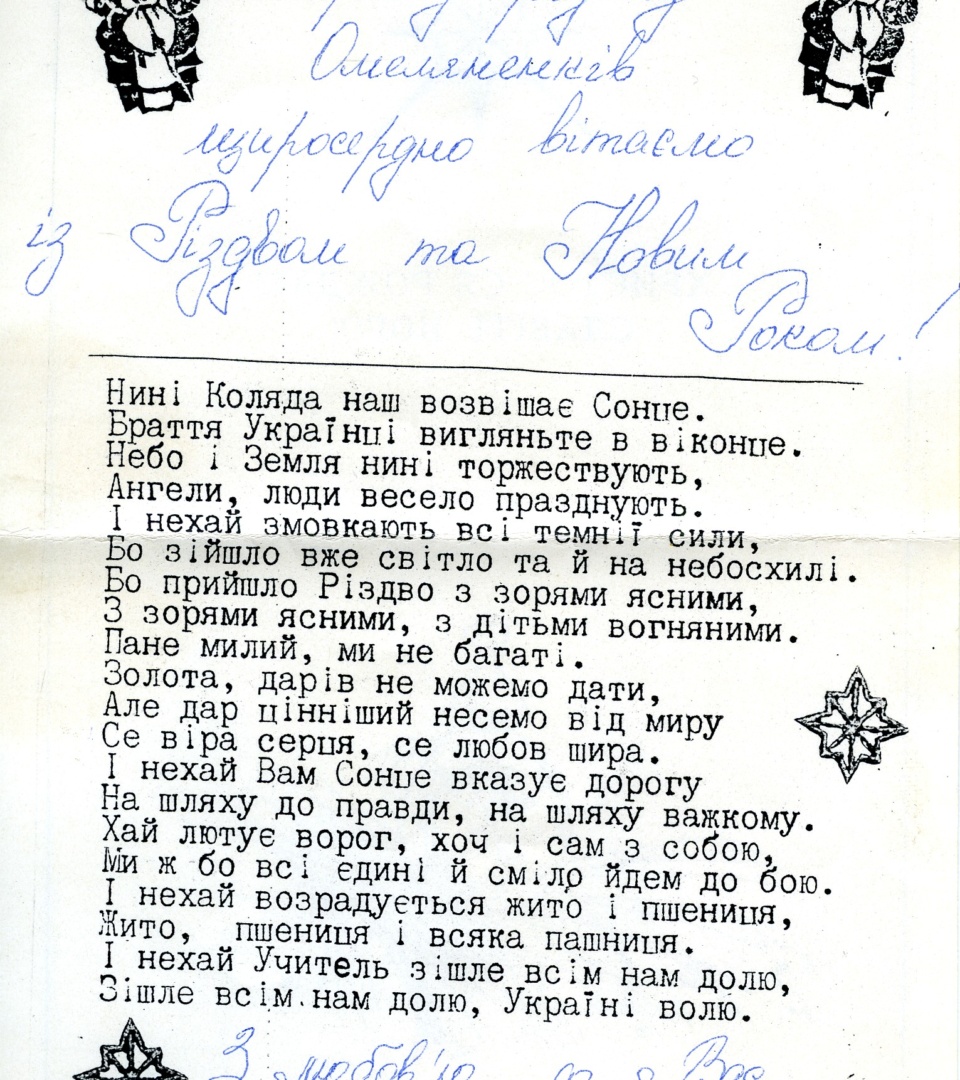 Омеляненків
щиросердно вітаємо
із Різдвом та Новим
Роком!
Нині Коляда наш возвішає Сонце.
Браття Українці вигляньте в віконце.
Небо і Земля нині торжествують,
Ангели, люди весело празднують.
І нехай змовкають всі темнії сили,
Бо зійшло вже світло та й на небосхилі.
Бо прийшло Різдво з зорями ясними,
З зорями ясними, з дітьми вогняними.
Пане милий, ми не багаті.
Золота, дарів не можемо дати,
Але дар цінніший несемо від миру
Се віра серця, се любов щира.
І нехай Вам Сонце вказує дорогу
На шляху до правди, на шляху важкому.
Хай лютує ворог, хоч і сам з собою,
Ми ж бо всі єдині й сміло йдем до бою.
І нехай возрадується жито і пшениця,
Жито, пшениця і всяка пашниця.
І нехай Учитель зішле всім нам долю,
Зішле всім.нам долю, Україні волю.
З любов'ю Вас